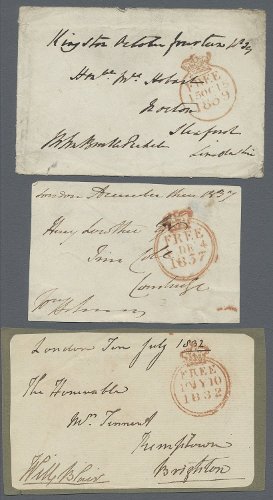 Kingston October fourteen 1839
Honble Mrs Hobart
Nocton
Sleaford
Lincolnshire
FREE
15 OC 15
1839
London December three 1837
Henry Lowther Esq
Trin Coll
Cambridge
FREE
DE 4
1837
London Ten July 1832
The Honorable
Mrs Tennent
Brighton
FREE
10 JY 10
1832